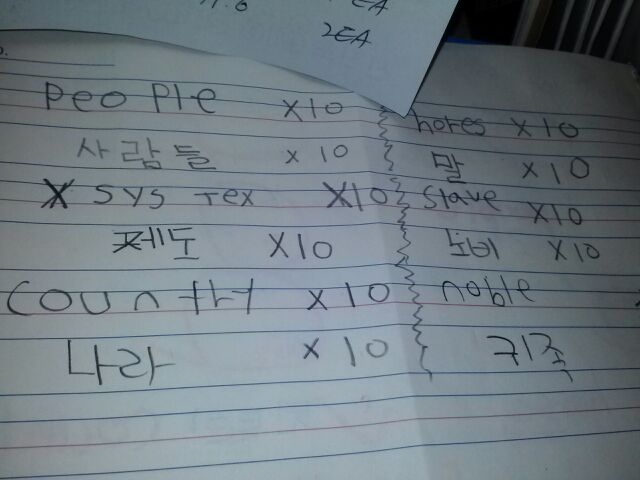 2EA
people x10
사람들 x10
x sys tex x10
제도 x10
country x10
나라 x10
hores x10
말 x10
Slave x10
노비 x10
noble
귀족